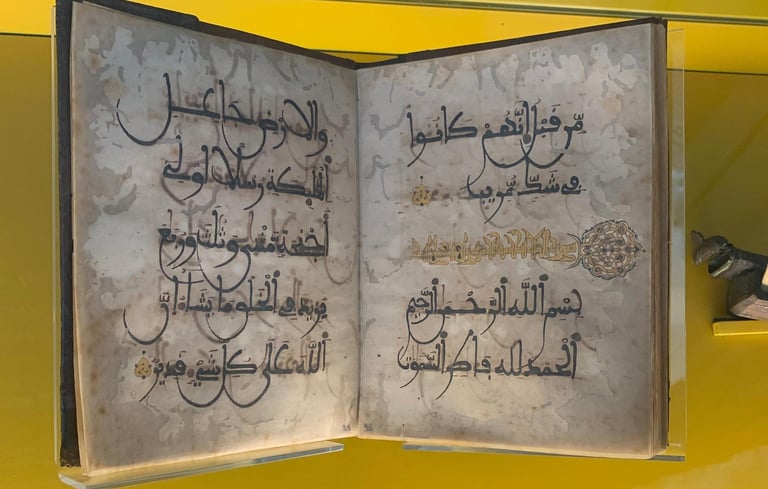 مِّن قَبْلُ إِنَّهُمْ كَانُوا۟
فِى شَكٍّ مُّرِيبٍ
بِسْمِ ٱللَّهِ ٱلرَّحْمَٰنِ ٱلرَّحِيمِ
ٱلْحَمْدُ لِلَّهِ فَاطِرِ ٱلسَّمَٰوَٰتِ
وَٱلْأَرْضِ جَاعِلِ
ٱلْمَلَٰٓئِكَةِ رُسُلًا أُو۟لِىٓ
أَجْنِحَةٍ مَّثْنَىٰ وَثُلَٰثَ وَرُبَٰعَ
يَزِيدُ فِى ٱلْخَلْقِ مَا يَشَآءُ إِنَّ
ٱللَّهَ عَلَىٰ كُلِّ شَىْءٍ قَدِيرٌ